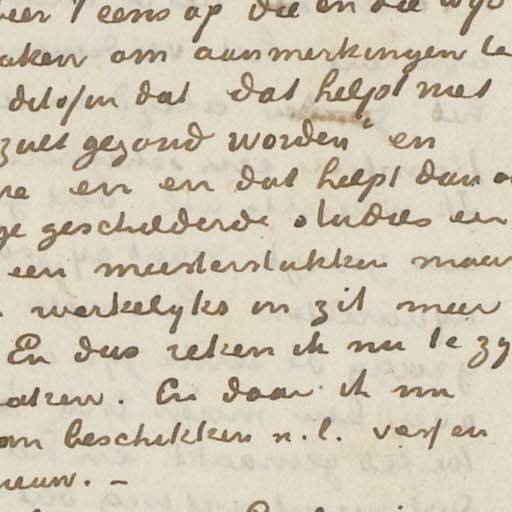 eens op die en die wijs
aken om aanmerkingen te
dit of in dat dat helpt niet
zult gezond worden" en
en en dat helpt dan
geschilderde studies en
een meesterstukken maar
werkelyks in zit meer
En dus reken ik nu te zy
maken. En daar ik nu
beschikken n.l. verf en
nieuw. –